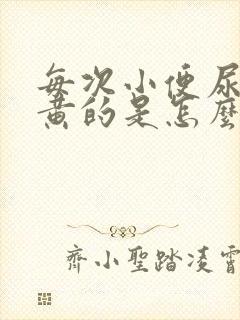 每次小便尿
黄的是怎麼
齊小聖踏凌霄